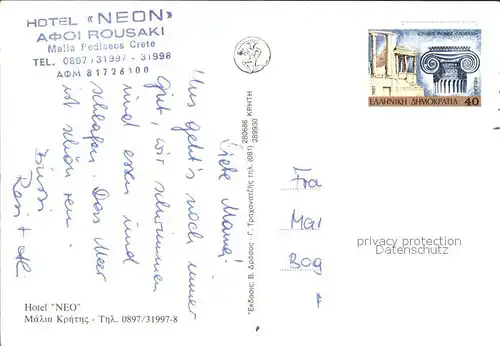 HOTEL «NEON»
ΑΦΟΙ ROUSAKI
Malia Pediados Crete
TEL. 0897/31997 - 31998
ΑΦΜ 81726100
Liebe Mama!
Uns geht's noch immer
gut, wir schwimmen
und essen und
schlafen. Das Meer
ist schön
Bussi
Resi +
Hotel "NEO"
Μάλια Κρήτης - Τηλ. 0897/31997-8
Έκδοσις: Β. Δράσος - Γ. Τραχανατζής τηλ. (081) 280686 ΚΡΗΤΗ
289930
ΙΩΝΙΚΟΣ ΡΥΘΜΟΣ
1987
ΕΛΛΗΝΙΚΗ ΔΗΜΟΚΡΑΤΙΑ 40
Fra
Mai
Bog
privacy protection
Datenschutz